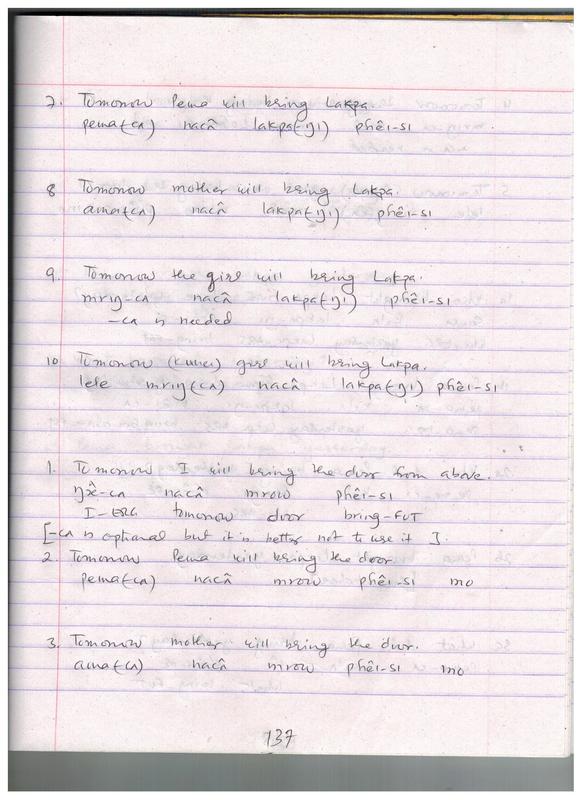 7. Tomorrow Pema will bring Lakpa.
pema(-cʌ) nacâ lakpa(-ŋı) phêı-sı
8 Tomorrow mother will bring Lakpa.
ama(-cʌ) nacâ lakpa(-ŋı) phêı-sı
9. Tomorrow the girl will bring Lakpa.
mrıŋ-cʌ nacâ lakpa(-ŋı) phêı-sı
-cʌ is needed
10 Tomorrow (Kunes) girl will bring Lakpa.
lele mrıŋ(-cʌ) nacâ lakpa(-ŋı) phêı-sı
1. Tomorrow I will bring the door from above.
ŋʌ̂-cʌ nacâ mrow phêı-sı
I-ERG tomorrow door bring-FUT
[-cʌ is optional but it is better not to use it ].
2. Tomorrow Pema will bring the door.
pema(-cʌ) nacâ mrow phêı-sı mo
3. Tomorrow mother will bring the door.
ama(-cʌ) nacâ mrow phêı-sı mo
137